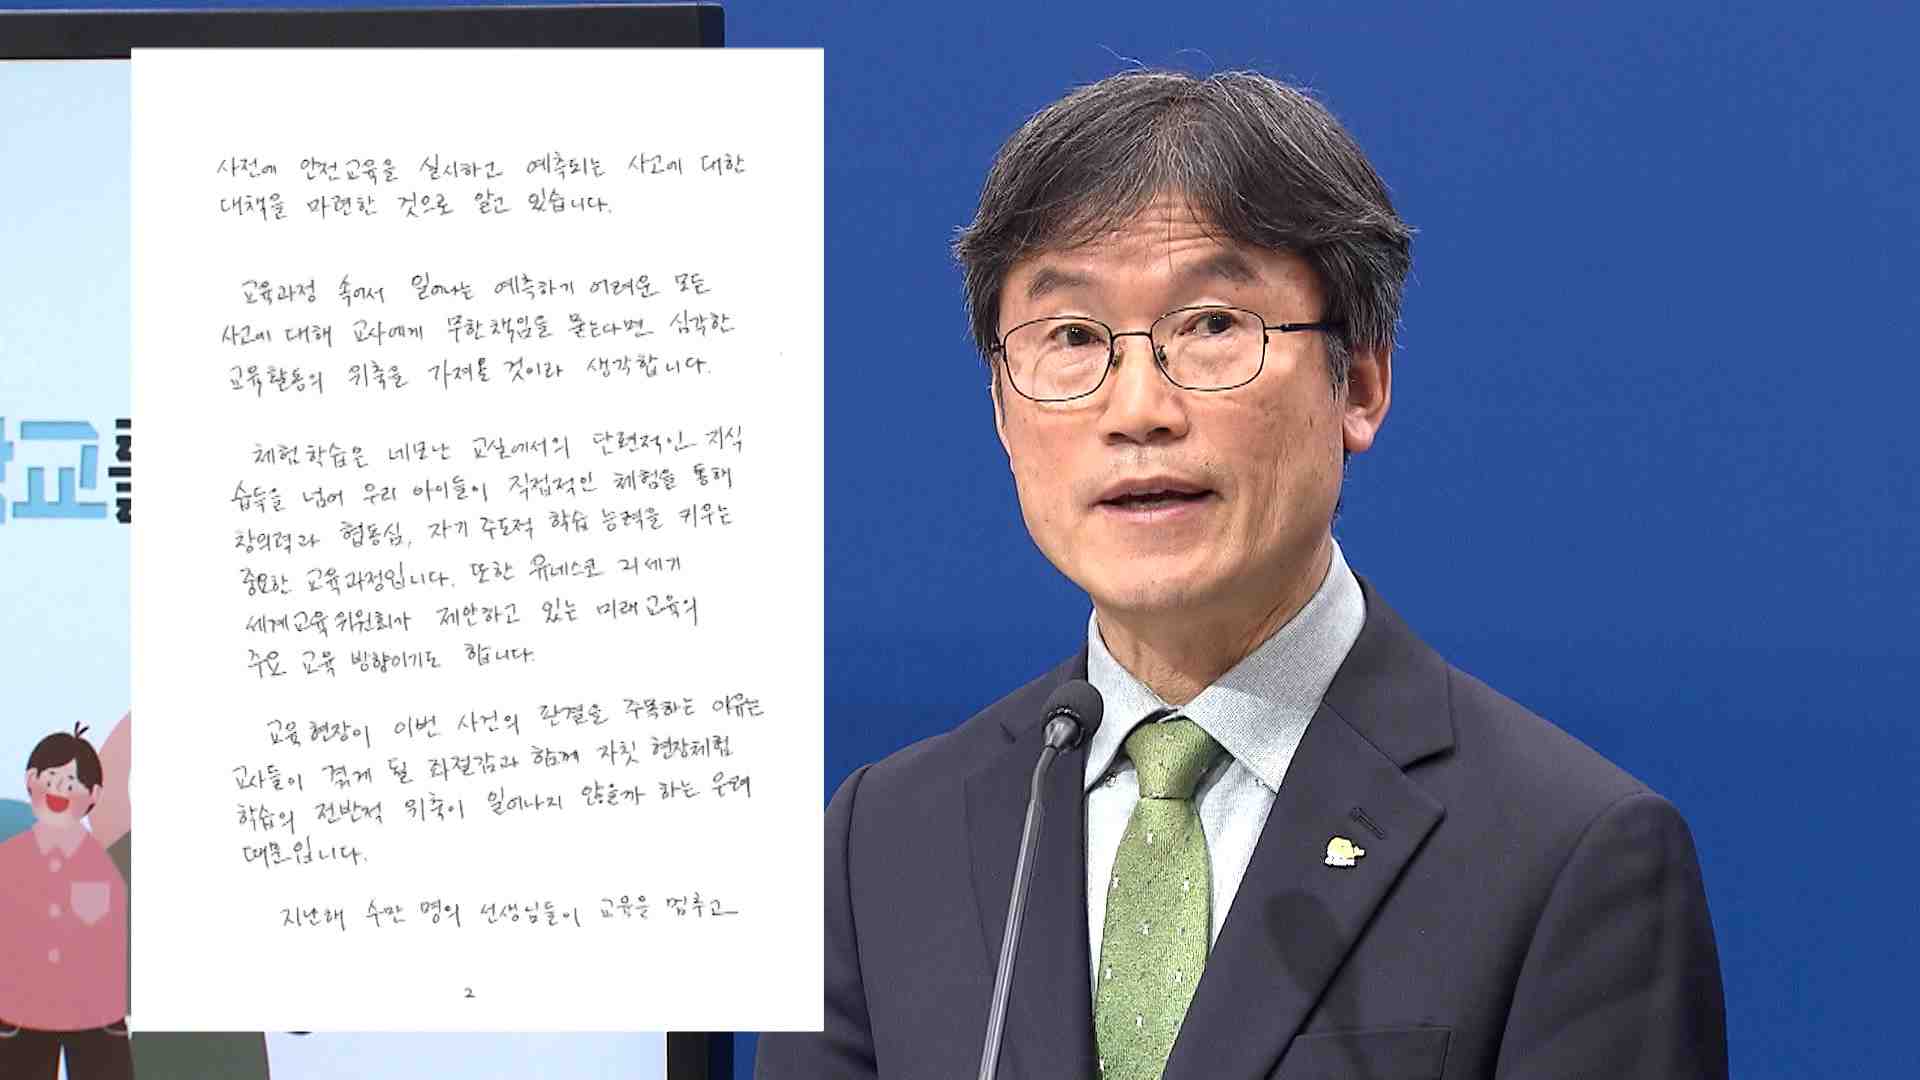 사전에 안전교육을 실시하고 예측되는 사고에 대한
대책을 마련한 것으로 알고 있습니다.
교육과정 속에서 일어나는 예측하기 어려운 모든
사고에 대해 교사에게 무한책임을 묻는다면 심각한
교육활동의 위축을 가져올 것이라 생각합니다.
체험학습은 네모난 교실에서의 단편적인 지식
습득을 넘어 우리 아이들이 직접적인 체험을 통해
창의력과 협동심, 자기 주도적 학습 능력을 키우는
중요한 교육과정입니다. 또한 유네스코 21세기
세계교육위원회가 제안하고 있는 미래교육의
주요 교육 방향이기도 합니다.
교육현장이 이번 사건의 판결을 주목하는 이유는
교사들이 겪게 될 좌절감과 함께 자칫 현장체험
학습의 전반적 위축이 일어나지 않을까 하는 우려
때문입니다.
지난해 수만 명의 선생님들이 교육을 멈추고
2